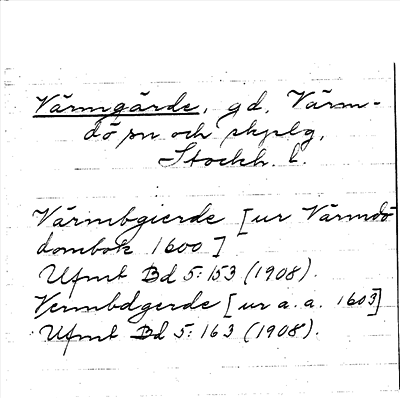 Värmgärde, gd, Värm-
dö sn och skplg,
Stockh. l.
Värmbgierde [ur Värmdö
dombok 1600]
Ufmt Bd 5:153 (1908).
Vermbdgerde [ur a.a. 1603]
Ufmt Bd 5:163 (1908).